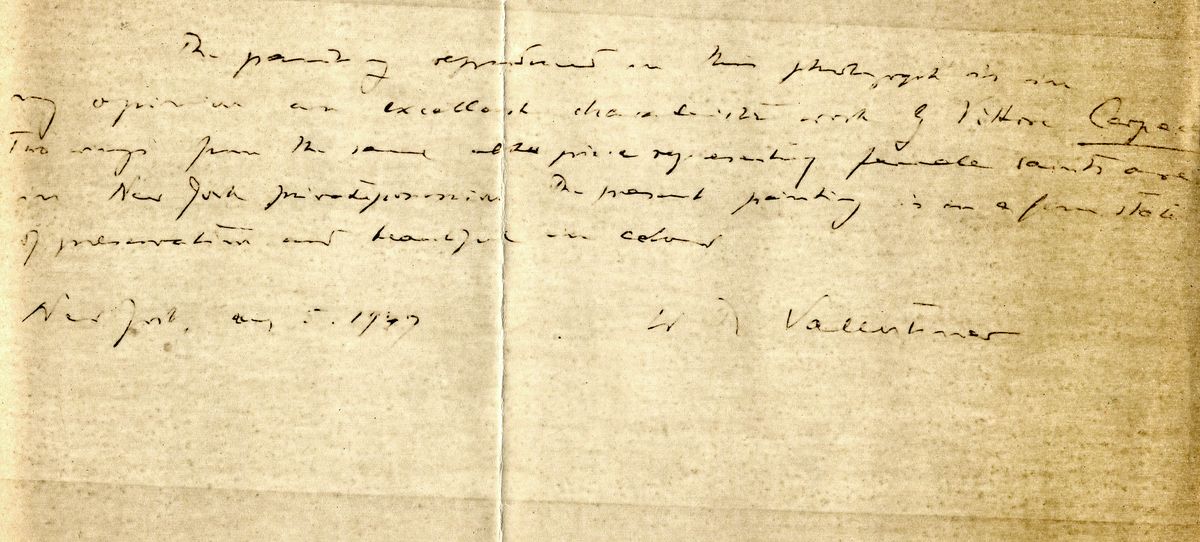 The painting reproduced in this photograph is in
my opinion an excellent characteristic work by Vittore Carpac
Two wings from the same altar piece representing female saints are
in New York private possession. The present painting is in a fine state
of preservation and beautiful in colour
New York, 5. 1947
W R Valentiner